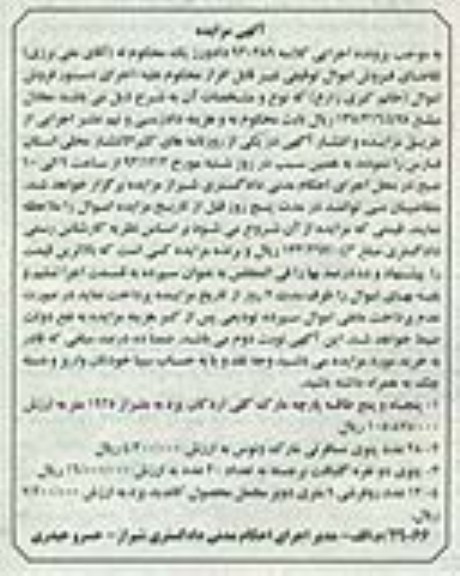 آگهی مزایده
به موجب پرونده اجرایی کلاسه ۹۳۰۲۸۹ دادورز یک محکوم له (آقای علی برزی)
تقاضای فروش اموال توقیفی غیر قابل افراز محکوم علیه اجرای دستور فروش
اموال (خانم کبری زارع) که نوع و مشخصات آن به شرح ذیل می باشد معادل
مبلغ ریال بابت محکوم به و هزینه دادرسی و نیم عشر اجرایی از
طریق مزایده و انتشار آگهی در یکی از روزنامه های کثیرالانتشار محلی استان
فارس را نموده به همین سبب در روز شنبه مورخ از ساعت ۹ الی ۱۰
صبح در محل اجرای احکام مدنی دادگستری شیراز مزایده برگزار خواهد شد.
متقاضیان می توانند در مدت پنج روز قبل از تاریخ مزایده اموال را ملاحظه
نمایند. قیمتی که مزایده از آن شروع می شود بر اساس نظریه کارشناس رسمی
دادگستری مبلغ ریال و برنده مزایده کسی است که بالاترین قیمت
را پیشنهاد و ده درصد بها را فی المجلس به عنوان سپرده به قسمت اجرا تسلیم و
بقیه بهای اموال را ظرف مدت روز از تاریخ مزایده پرداخت نماید در صورت
عدم پرداخت مابقی اموال سپرده تودیعی پس از کسر هزینه مزایده به نفع دولت
ضبط خواهد شد. این آگهی نوبت دوم می باشد. ضمنا ده درصد مبلغی که قادر
به خرید مورد مزایده می باشید وجه نقد و یا به حساب سیبا خودتان واریز و دسته
چک به همراه داشته باشید.
۱- پنجاه و پنج طاقه پارچه مارک گلی اردکان یزد به متراژ ۱۹۲۵ متر به ارزش
ریال
۲- ۲۸ عدد پتوی مسافرتی مارک ونوس به ارزش ریال
۳- پتوی دو نفره گلبافت برجسته به تعداد ۲۰ عدد به ارزش ریال
۴- ۱۲ عدد روفرشی ۹ متری محصول یزد به ارزش
ریال
۲۹۰۶۶/م‌الف- مدیر اجرای احکام مدنی دادگستری شیراز- خسرو حیدری